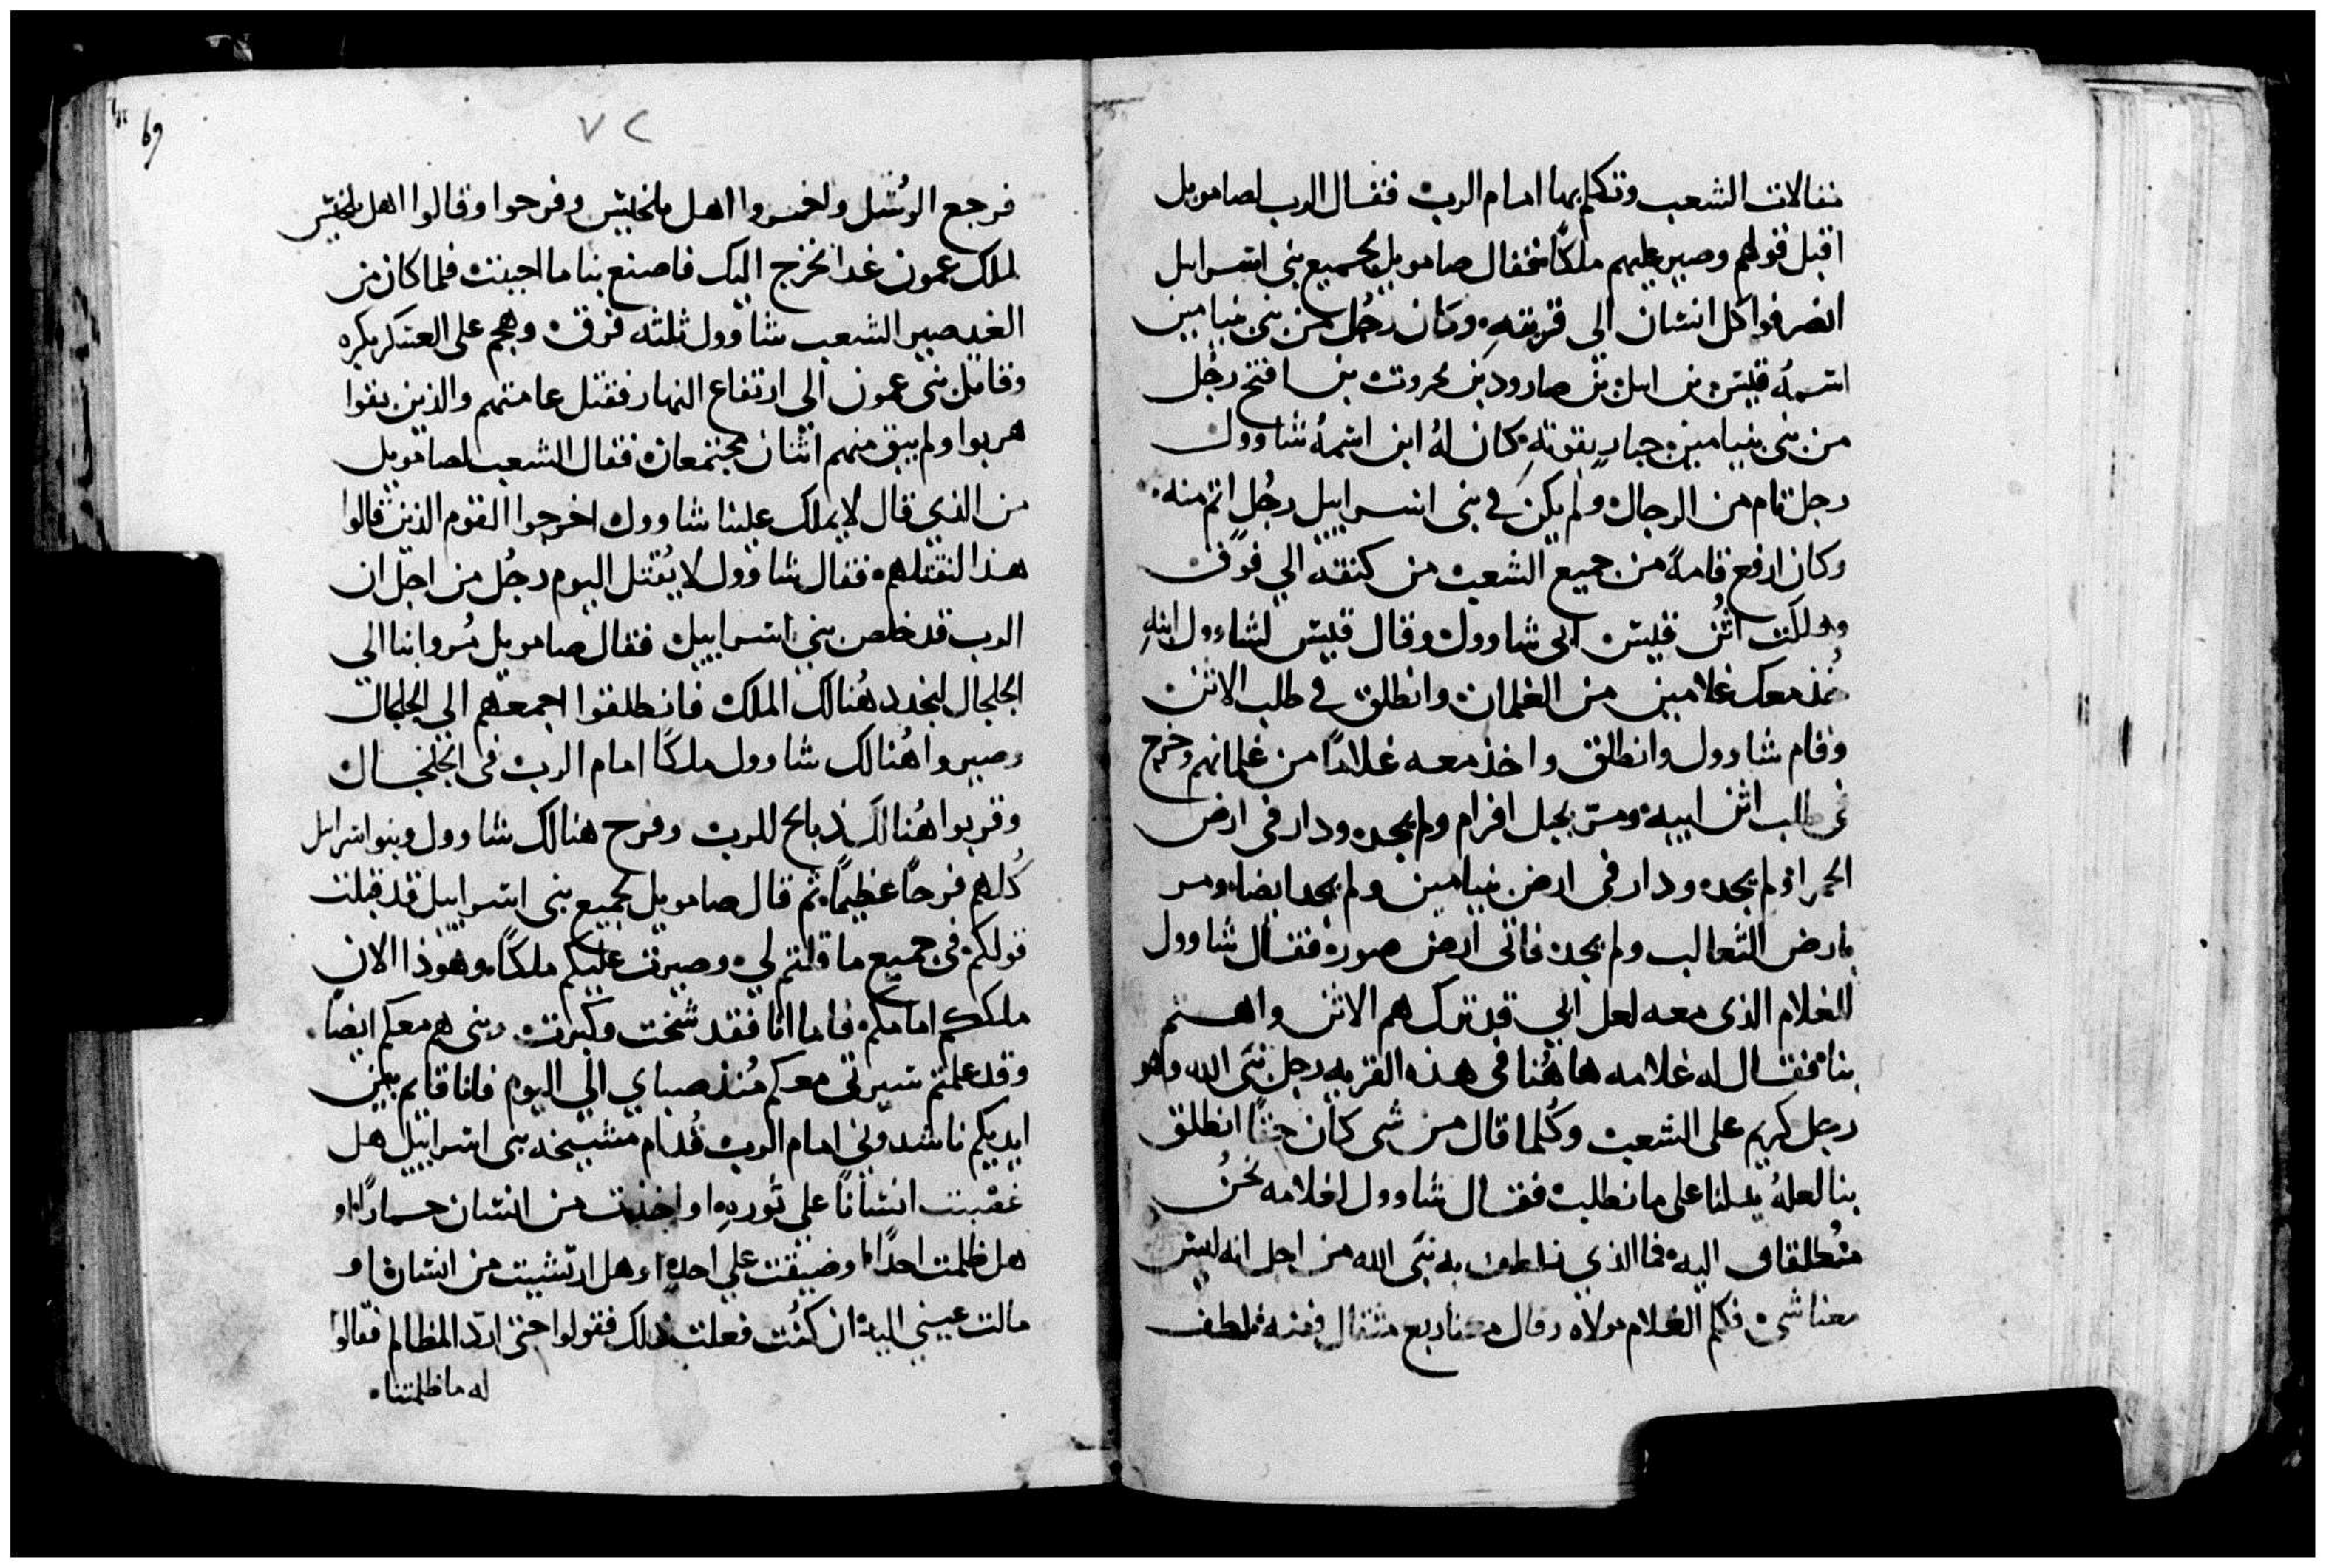 مقالات الشعب وتكلم بها امام الرب فقال الرب لصامويل
اقبل قولهم وصير عليهم ملكًا فقال صامويل لجميع بني اسرايل
انصرفوا كل انسان الى قريته وكان رجُل من بني بنيامين
اسمهُ قيس بن ابيل بن صارود بن بحروت بن افتح رجُل
من بني بنيامين جبار بقوته كان لهُ ابن اسمهُ شاوول
رجل تام من الرجال ولم يكن في بني اسراييل رجُل اتم منه
وكان ارفع قامةً من جميع الشعب من كتفه الي فوق
وهلكت اُتُن قيس ابى شاوول وقال قيس لشاءول ابنهِ
خُذ معك غلامين من الغلمان وانطلق في طلب الاتن
وقام شاوول وانطلق واخذ معه غلامًا من غلمانهم وخرج
في طلب اتن ابيه ومرّ بجبل افرام ولم يجده ودار في ارض
الحمرا ولم يجده ودار في ارض بنيامين ولم يجد ايضا ومر
بارض الثعالب ولم يجد فاتى ارض صوره فقال شاوول
للغلام الذى معه لعل ابي قد ترك هم الاتن واهتم
بنا فقال له غلامه هاهُنا في هذه القريه رجل نبّى الله وهو
رجل كريم على الشعب وكُلما قال من شي كان حقًا انطلق
بنا لعلهُ يدلنا على ما نطلب فقال شاوول لغلامه نحنُ
مُنطلقان اليه فما الذي نلطف به نبّى الله من اجل انه ليس
معنا شى فكلم الغلام مولاه وقال معنا ربع مثقال فضه نلطف
٧٢
69
فرجع الرُسُل واخبروا اهل يابيس وفرحوا وقالوا اهل يابيس
لملك عمون غدا نخرج اليك فاصنع بنا ما احببت فلما كان من
الغد صير الشعب شاوول ثلثه فرق وهجم على العسكر بكره
وقاتل بني عمون الى ارتفاع النهار فقتل عامتهم والذين بقوا
هربوا ولم يبق منهم اثنان مجتمعان فقال الشعب لصامويل
من الذي قال لا يملك علينا شاوول اخرجوا القوم الذين قالوا
هذا لنقتلهم فقال شاوول لا يُقتل اليوم رجُل من اجل ان
الرب قد خلص بني اسراييل فقال صامويل مُروا بنا الي
الجلجال لنجدد هُنالك الملك فانطلقوا اجمعهم الي الجلجال
وصيروا هُنالك شاوول ملكًا امام الرب في الجلجال
وقربوا هُنالك ذبايح للرب وفرح هنالك شاوول وبنو اسرايل
كُلهم فرحًا عظيمًا ثم قال صامويل لجميع بني اسراييل قد قبلت
قولكم في جميع ما قلتم لي وصيرت عليكم ملكًا وهوذا الان
ملككم امامكم فاما انا فقد شخت وكبرت وبني هم معكم ايضًا
وقد علمتم سيرتي معكم مُنذ صباي الي اليوم فانا قايم بين
ايديكم ناشدوني امام الرب قُدام مشيخه بني اسراييل هل
غصبت انسانًا على ثوره او اخذت من انسان حمارًا او
هل ظلمت احدًا او ضيقت على احد او هل ارتشيت من انسان او
مالت عيني اليه ان كُنت فعلت ذلك فقولوا حتى ارد المظالم فقالوا
له ما ظلمتنا